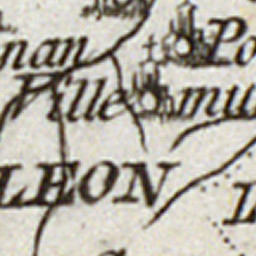 nan Po
Ville mu
LEON
L